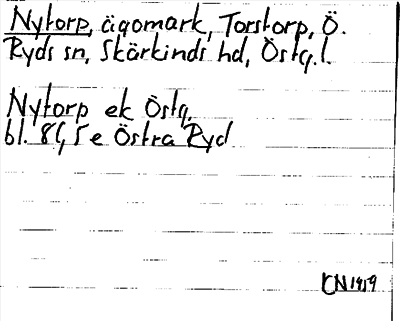 Nytorp, ägomark, Torstorp, Ö.
Ryds sn, Skärkinds hd, Östg. l.
Nytorp ek Östg.
bl. 8G, 5e Östra Ryd
CN 1919